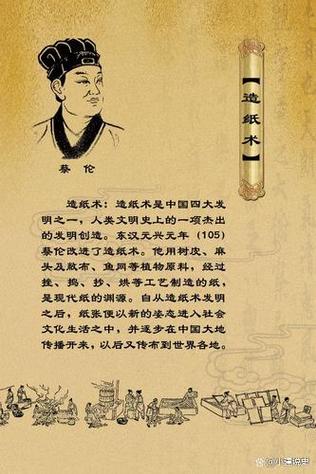 【造纸术】
蔡伦
造纸术：造纸术是中国四大发
明之一，人类文明史上的一项杰出
的发明创造。东汉元兴元年（105）
蔡伦改进了造纸术。他用树皮、麻
头及敝布、鱼网等植物原料，经过
挫、捣、抄、烘等工艺制造的纸，
是现代纸的渊源。自从造纸术发明
之后，纸张便以新的姿态进入社会
文化生活之中，并逐步在中国大地
传播开来，以后又传布到世界各地。